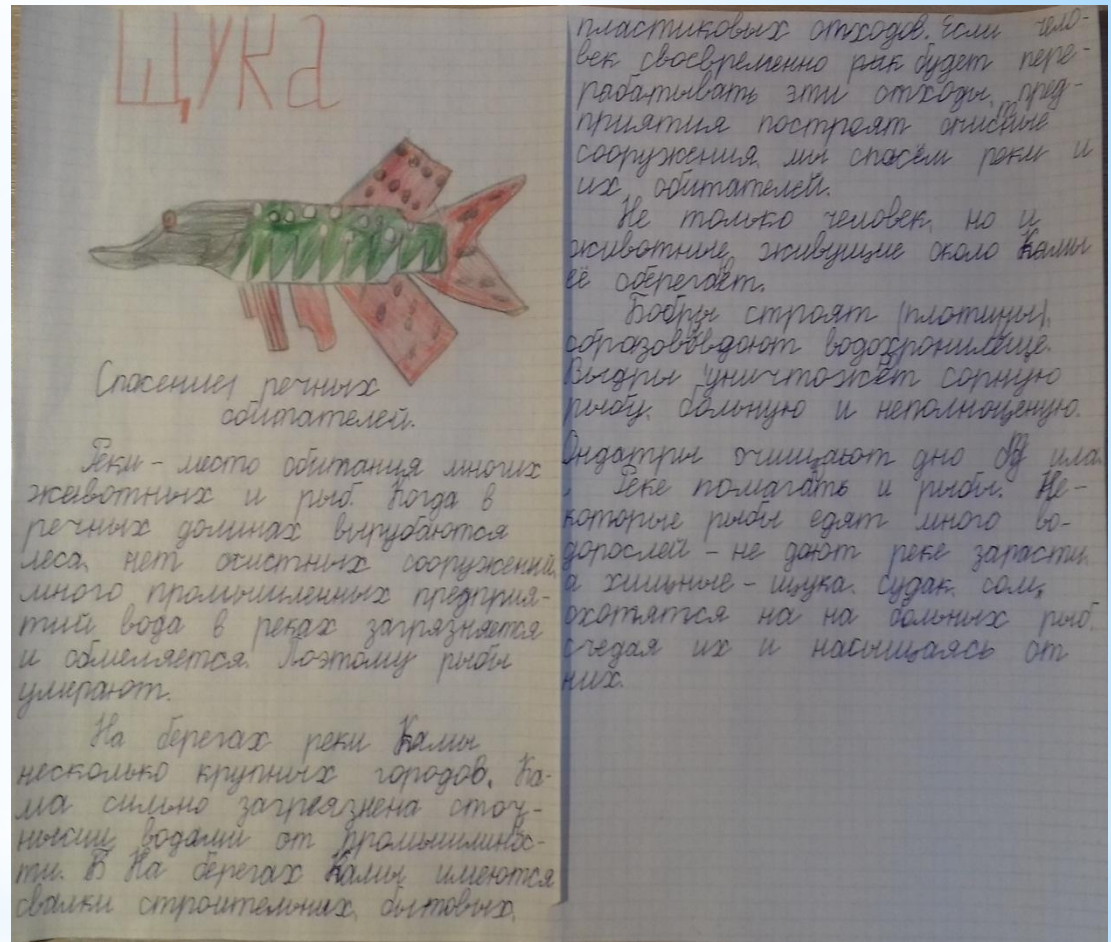 Щука
Спасение речных
обитателей.
Реки - место обитания многих
животных и рыб. Когда в
речных долинах вырубаются
леса, нет очистных сооружений,
много промышленных предприя-
тий вода в реках загрязняется
и обмеляется. Поэтому рыбы
умирают.
На берегах реки Камы
несколько крупных городов. Ка-
ма сильно загрязнена сточ-
ными водами от промышлинос-
ти. В На берегах Камы имеются
свалки строительных, бытовых,
пластиковых отходов. Если чело-
век своевременно будет пере-
рабатывать эти отходы, пред-
приятия построят очистные
сооружения, мы спасём реки и
их обитателей.
Не только человек, но и
животные, живущие около Камы
её оберегает.
Бобры строят (плотины),
водохронилище.
Выдры уничтожает сорную
рыбу, больную и неполноценую.
Ондатры очищают дно ила.
Реке помагать и рыбы. Не-
которые рыбы едят много во-
дорослей - не дают реке зарасти,
а хищные - щука, судак, сом,
охотятся на на больных рыб,
съедая их и насыщаясь от
них.